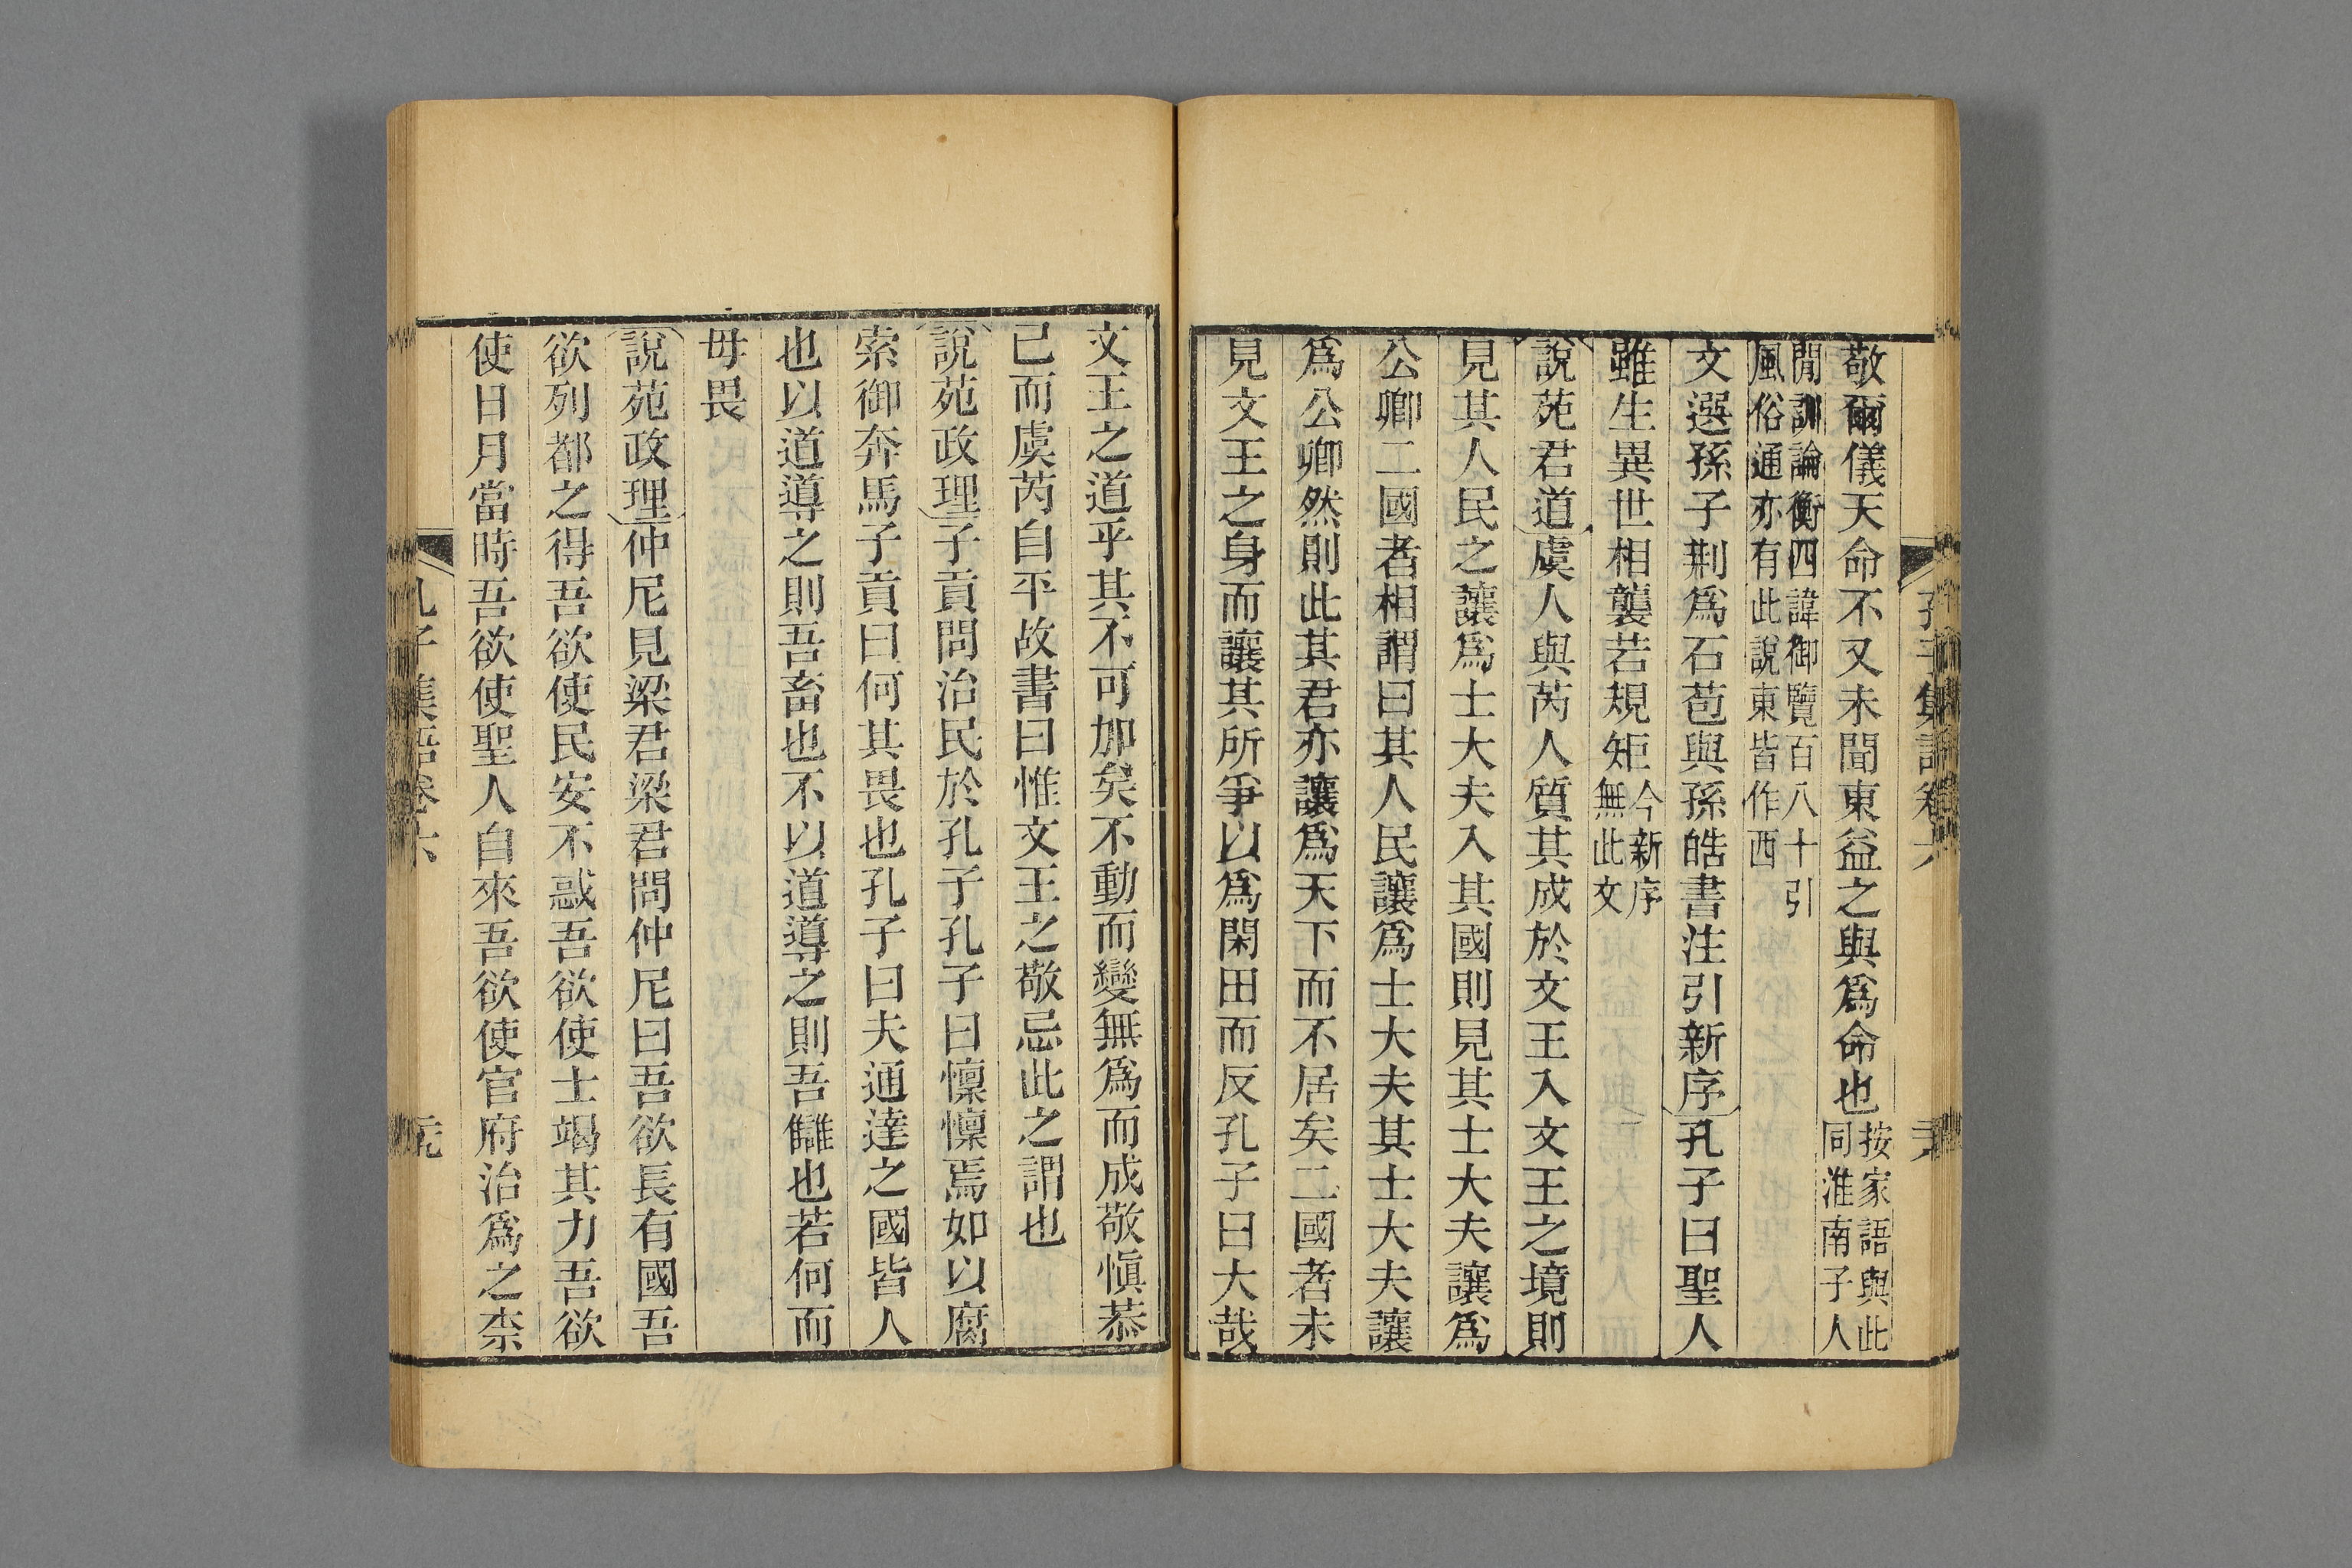 孔子集語卷六
敬爾儀天命不又未聞東益之與爲命也按家語與此同淮南子人
閒訓論衡四諱御覽百八十引風俗通亦有此說東皆作西
文選孫子荆爲石苞與孫皓書注引新序孔子曰聖人
雖生異世相襲若規矩今新序無此文
說苑君道虞人與芮人質其成於文王入文王之境則
見其人民之讓爲士大夫入其國則見其士大夫讓爲
公卿二國者相謂曰其人民讓爲士大夫其士大夫讓
爲公卿然則此其君亦讓爲天下而不居矣二國者未
見文王之身而讓其所爭以爲閑田而反孔子曰大哉
文王之道乎其不可加矣不動而變無爲而成敬愼恭
己而虞芮自平故書曰惟文王之敬忌此之謂也
說苑政理子貢問治民於孔子孔子曰懍懍焉如以腐
索御奔馬子貢曰何其畏也孔子曰夫通達之國皆人
也以道導之則吾畜也不以道導之則吾讎也若何而
毋畏
說苑政理仲尼見梁君梁君問仲尼曰吾欲長有國吾
欲列都之得吾欲使民安不惑吾欲使士竭其力吾欲
使日月當時吾欲使聖人自來吾欲使官府治爲之柰
孔子集語卷六